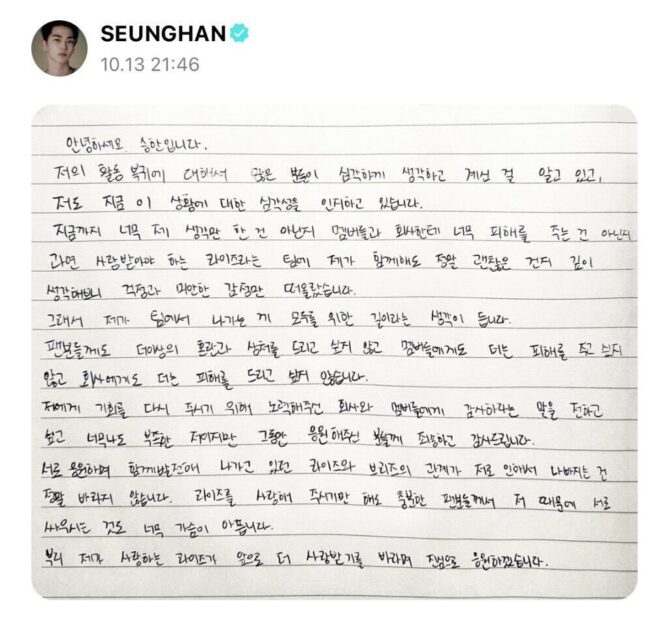 SEUNGHAN
10.13 21:46
안녕하세요 승한입니다.
저의 활동 복귀에 대해서 많은 분들이 심각하게 생각하고 계신 걸 알고 있고,
저도 지금 이 상황에 대한 심각성을 인지하고 있습니다.
지금까지 너무 제 생각만 한 건 아닌지 멤버들과 회사한테 너무 피해를 주는 건 아닌지
과연 사랑받아야 하는 라이즈라는 팀에 제가 함께해도 정말 괜찮은 건지 깊이
생각해보니 걱정과 미안한 감정만 떠올랐습니다.
그래서 제가 팀에서 나가는 게 모두를 위한 길이라는 생각이 듭니다.
팬분들께도 더이상의 혼란과 상처를 드리고 싶지 않고 멤버들에게도 더는 피해를 주고 싶지
않고 회사에게도 더는 피해를 드리고 싶지 않습니다.
저에게 기회를 다시 주시기 위해 노력해주신 회사와 멤버들에게 감사하다는 말을 전하고
싶고 너무나도 부족한 저이지만 그동안 응원해주신 분들께 죄송하고 감사드립니다.
서로 응원하며 함께 발전해 나가고 있던 라이즈와 브리즈의 관계가 저로 인해서 나빠지는 건
정말 바라지 않습니다. 라이즈를 사랑해 주시기만 해도 충분한 팬분들께서 저 때문에 서로
싸우시는 것도 너무 가슴이 아픕니다.
부디 제가 사랑하는 라이즈가 앞으로 더 사랑받기를 바라며 진심으로 응원하겠습니다.